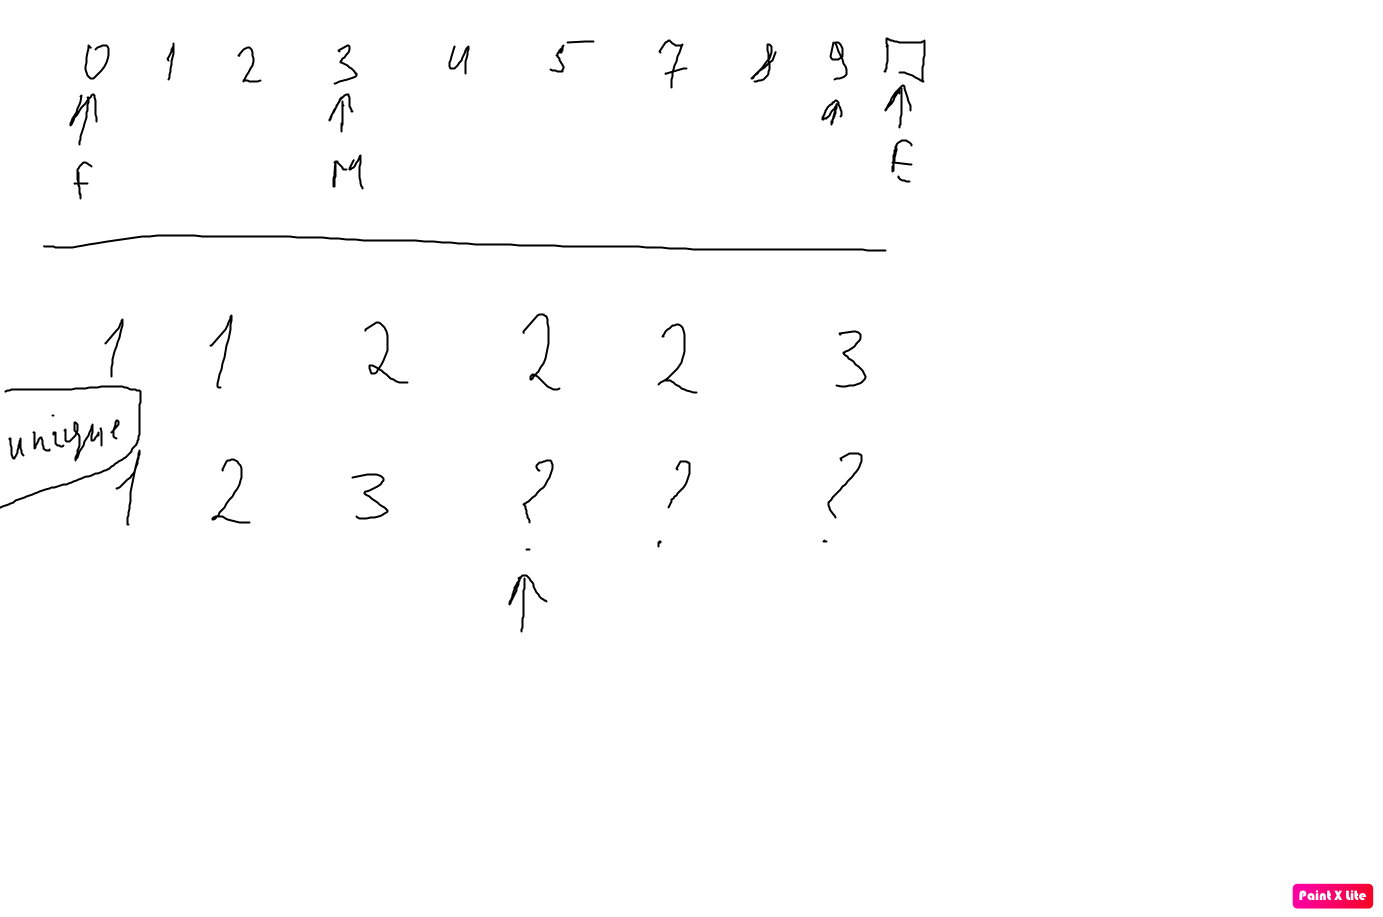 0 1 2 3 4 5 7 8 9
F M E
1 1 2 2 2 3
unique
1 2 3 ? ? ?
Paint X Lite